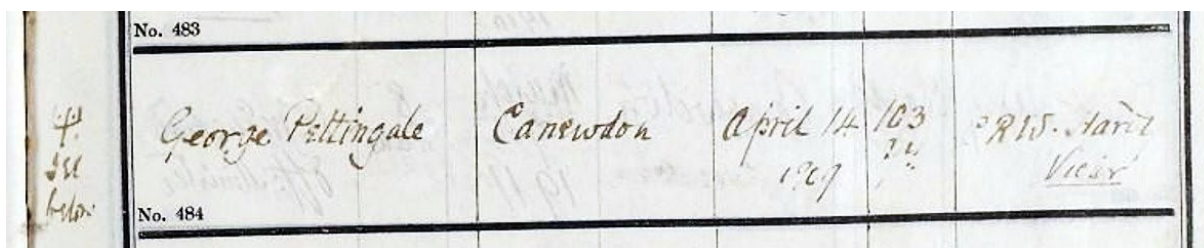 No. 483
George Pettingale Canewdon April 14 103
1909
Vicar
see
below
No. 484